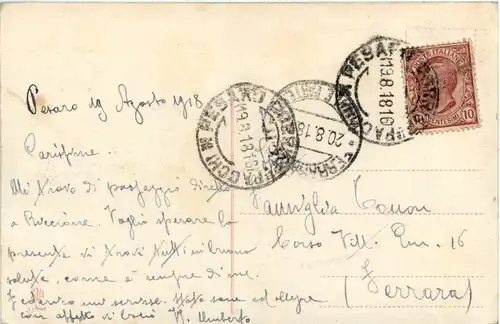 Pesaro 19 Agosto 1918
Carissime
Mi trovo di passaggio diretto
a Riccione. Voglio sperare la
presente vi trovi tutti in buona
salute, come è sempre di me.
Federico mi scrisse. State sane ed allegre
con affetto di baci Umberto
Famiglia
Corso Vitt. Em. 16
(Ferrara)
PESARO
19.8.18.16
PACCHI
PESARO
19.8.18.16
PACCHI
20.8.18
FERRARA
POSTE ITALIANE
10